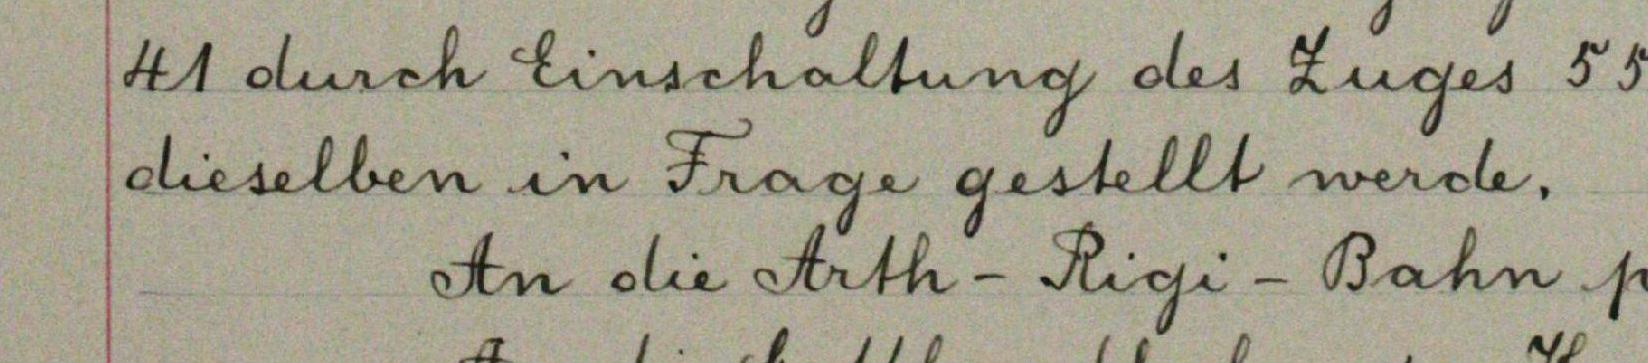 41 durch Einschaltung des Zuges 55
dieselben in Frage gestellt werde.
An die Arth - Rigi - Bahn